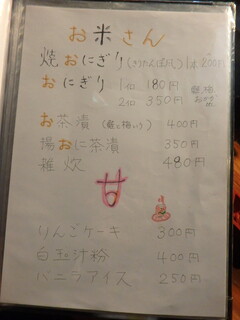 お米さん
焼おにぎり(きりたんぽ風)1個200円
おにぎり 1個 180円
2個 350円
鮭、梅
おかか
お茶漬(鮭と梅いり) 400円
揚おに茶漬 350円
雑炊 480円
甘
りんごケーキ 300円
白玉汁粉 400円
バニラアイス 250円